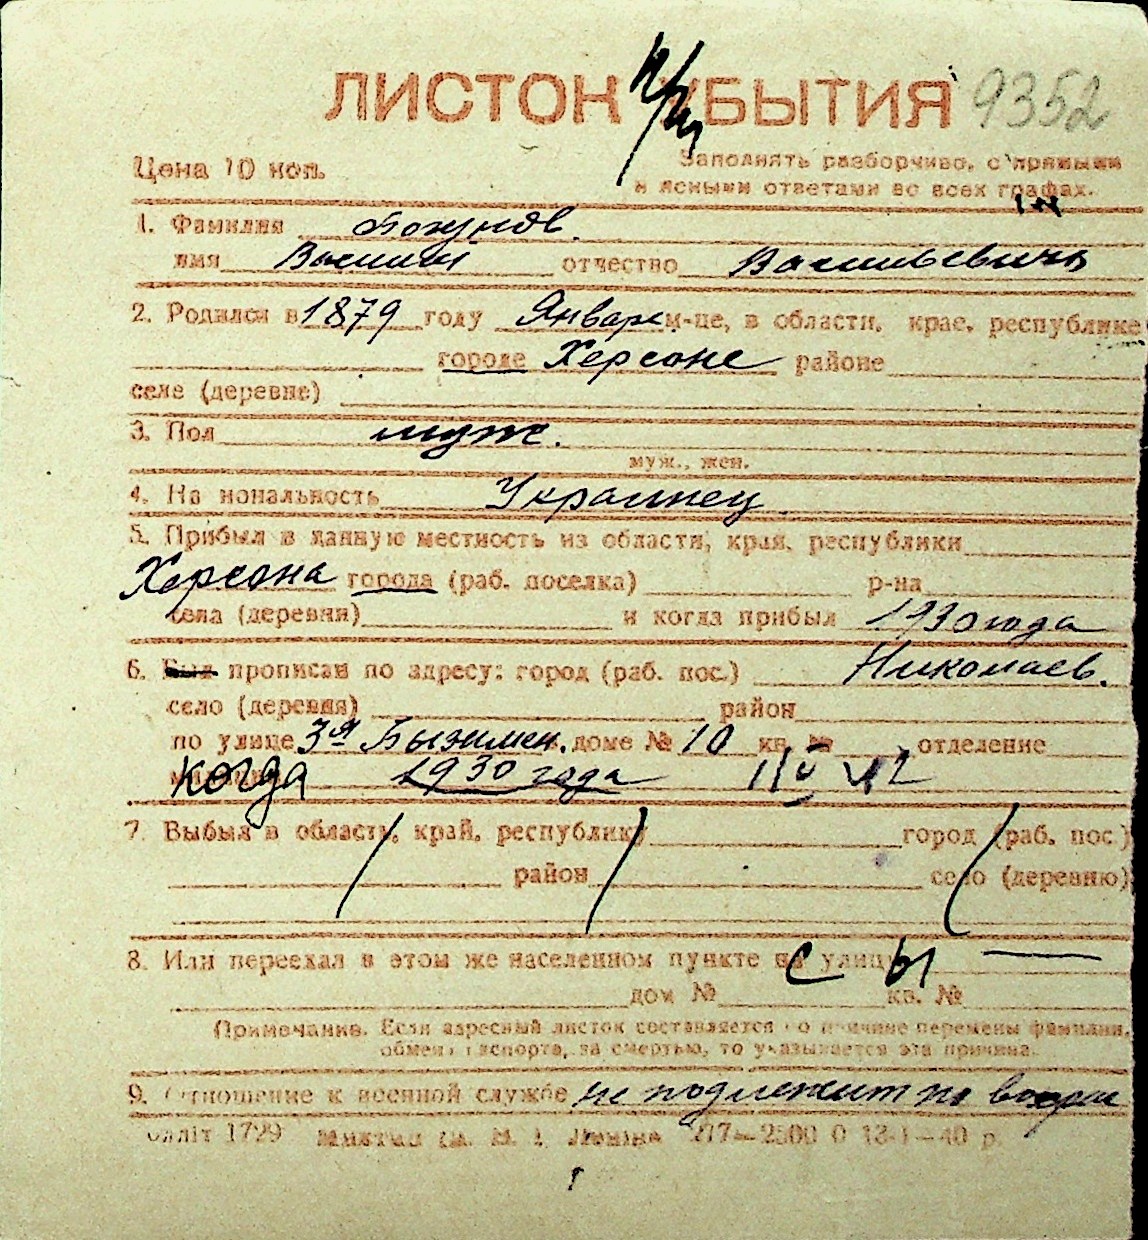 ЛИСТОК УБЫТИЯ 9352
Цена 10 коп.
Заполнять разборчиво, с прямыми
и ясными ответами во всех графах.
1. Фамилия Божунов.
имя Василий отчество Васильевичъ
2. Родился в 1879 году Январе м-це, в области, крае, республике
городе Херсоне районе
селе (деревне)
3. Пол муж.
муж., жен.
4. На нональность Украинец.
5. Прибыл в данную местность из области, края, республики
Херсона города (раб. поселка) р-на
села (деревня) и когда прибыл 1930 года
6. Был прописан по адресу: город (раб. пос.) Николаев.
село (деревня) район
по улице 3я Бызимен. доме № 10 кв. № отделение
когда 1930 года
7. Выбыл в область, край, республику город (раб. пос.)
район село (деревню)
8. Или переехал в этом же населенном пункте на улицу
дом № кв. №
Примечание. Если адресный листок составляется по причине перемены фамилии,
обмена паспорта, за смертью, то указывается эта причина.
9. Отношение к военной службе не подлежит по возра
Оkлiт 1729 217—2500 0 13-1—40 р.